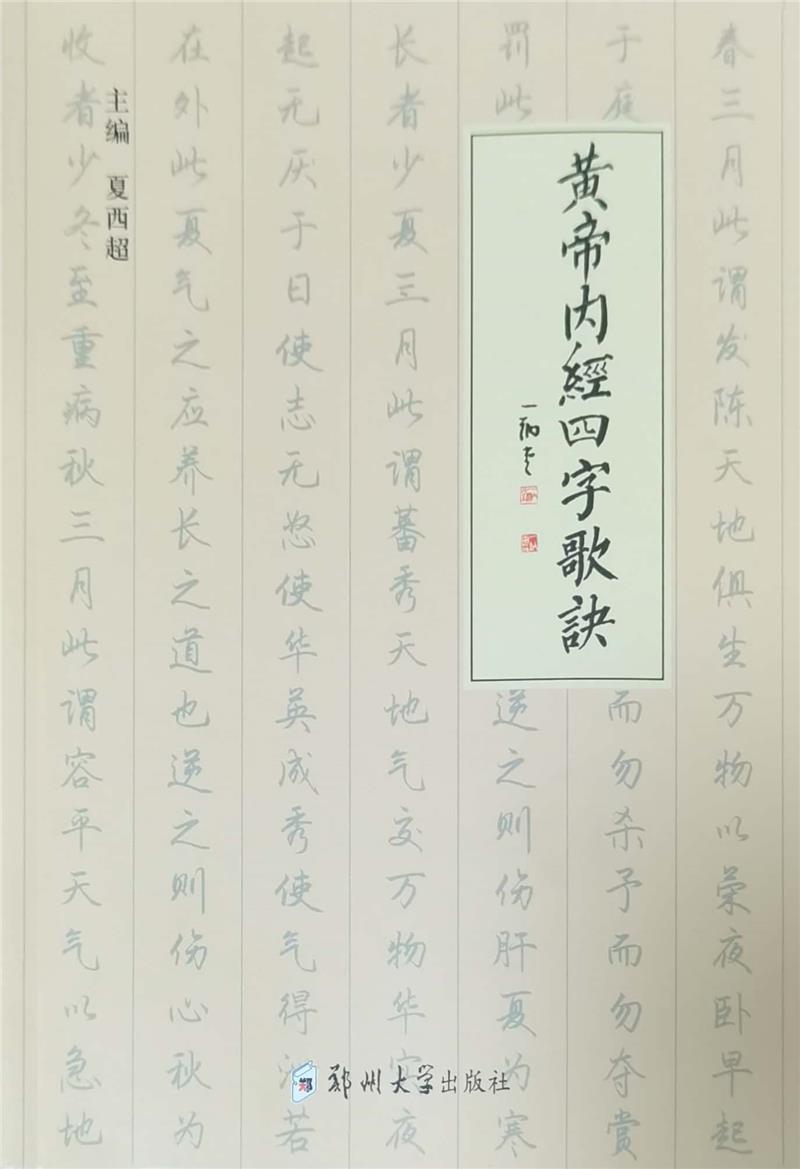 黄帝内經四字歌訣
主编 夏西超
郑州大学出版社
郑
春三月此谓发陈天地俱生万物以荣夜卧早起
于庭
而勿杀予而勿夺赏
罚此
逆之则伤肝夏为寒
长者少夏三月此谓蕃秀天地气交万物华实夜
起无厌于日使志无怒使华英成秀使气得泄若
在外此夏气之应养长之道也逆之则伤心秋为
收者少冬至重病秋三月此谓容平天气以急地